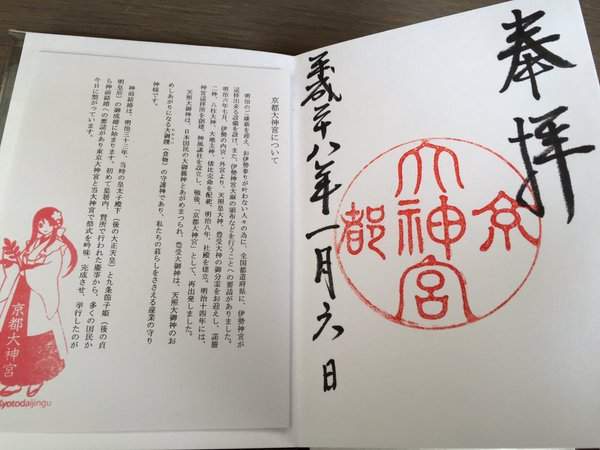 奉拝
京都大神宮
平成二十八年一月六日
京都大神宮について
明治のご維新を迎え、お伊勢参りがかなわない人々の為に、全国都道府県に、伊勢神宮が
遥拝出来る設備を設け、また、伊勢神宮大麻の頒布などを行うことへの要請がありました。
明治六年七月、伊勢の内宮・外宮より、天照皇大神、豊受大神の御分霊をお迎えし、諾册
二神、八柱大神、大地主神、倭比売命を配祀、明治八年、社殿を建立。明治十四年には、
神宮遥拝所を創建、神風講社を設立し、戦後、「京都大神宮」として、再出発しました。
天照大御神は、日本国民の大御親神とあがめまつられ、豊受大御神は、天照大御神のお
めしあがりになる大御饌(食物)の守護神であり、私たちの暮らしをささえる産業の守り
神様です。
神前結婚は、明治三十三年、当時の皇太子殿下(後の大正天皇)と九条節子姫(後の貞
明皇后)の御成婚に始まります。初めて皇居内、賢所で行われた慶事から、多くの国民か
ら神前結婚への要請があり東京大神宮と当大神宮で挙式を吟味、完成させ、挙行したのが
今日に繋がっています。
京都大神宮
kyotodaijingu